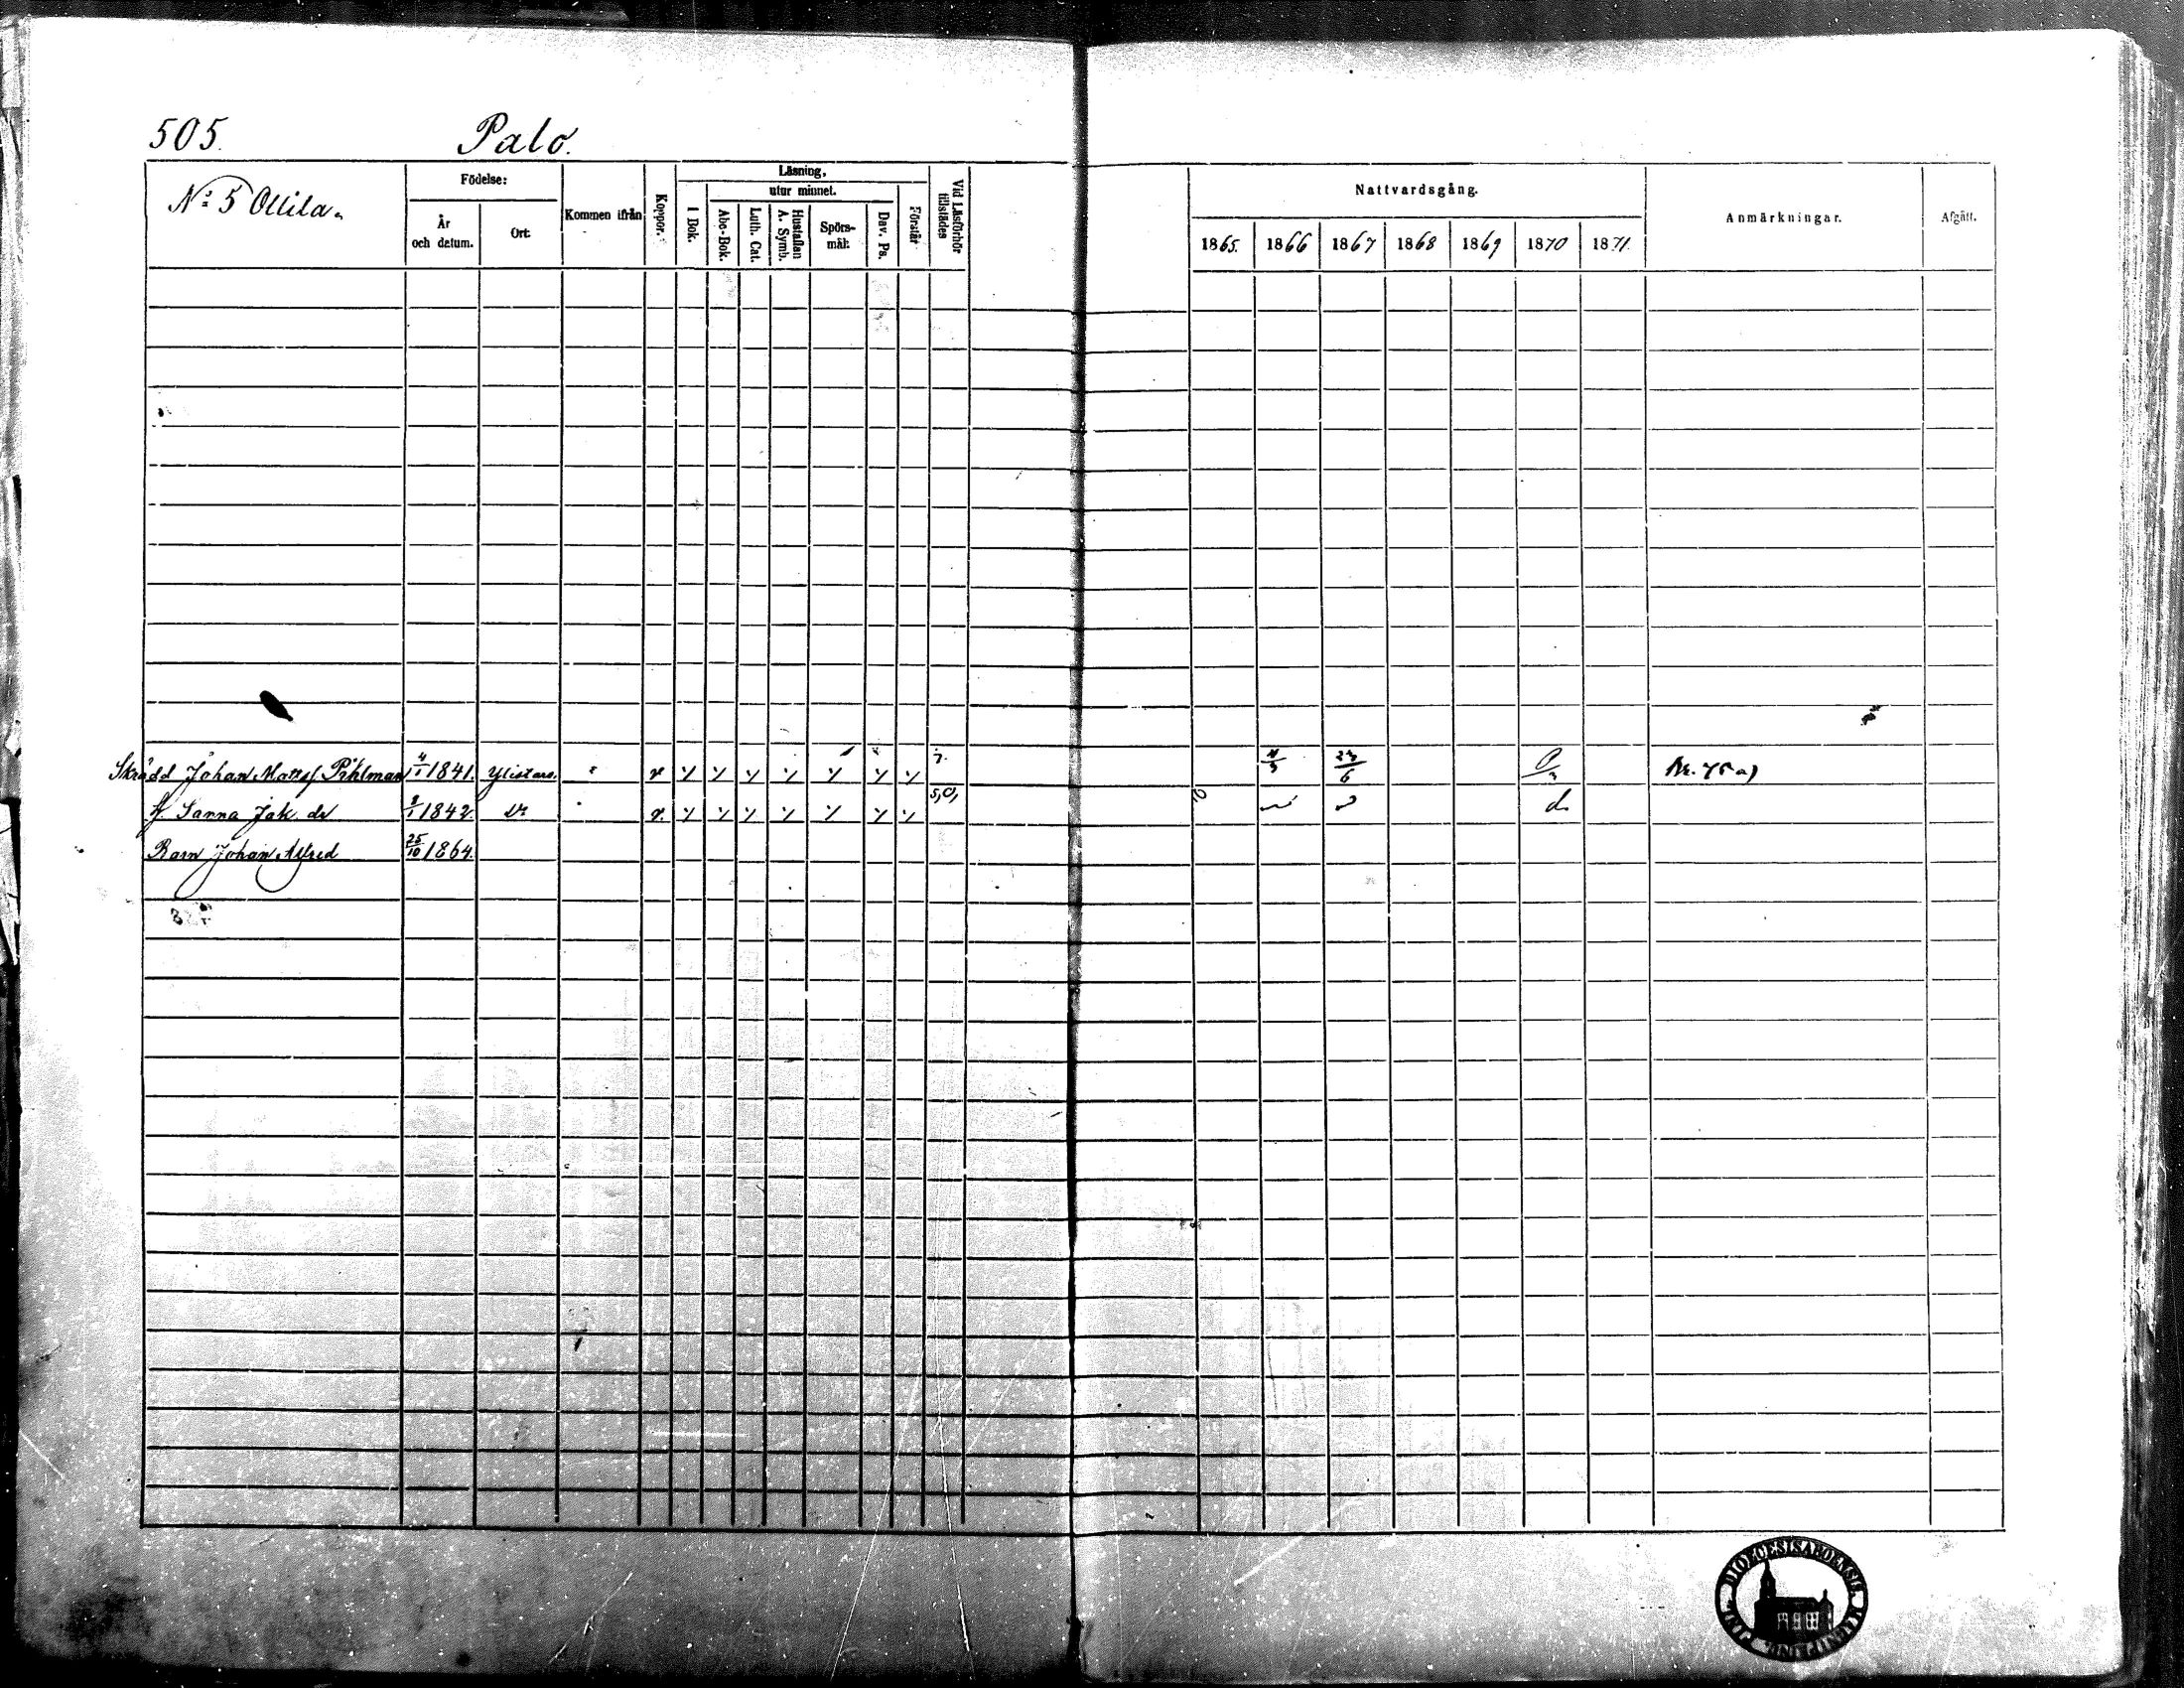 505. Palo.
No 5 Ollila.
Födelse:
År och datum.
Ort:
Kommen ifrån
Koppor.
Läsning,
utur minnet.
I Bok.
Abc-Bok.
Luth. Cat.
Hustaflan A. Symb.
Spörs-mål:
Dav. Ps.
Förstår
Vid Läsförhör tillstädes
Nattvardsgång.
1865. 1866 1867 1868 1869 1870 1871.
Anmärkningar.
Afgått.
Skrädd Johan Matts Pihlman 4/1 1841. Ylistaro. 7. 4/3 23/6
H. Sanna Jak. dr 3/1 1842. dr 5,0, 10 d.
Barn Johan Alfred 25/10 1864.
DIOECESIS ABOENSIS